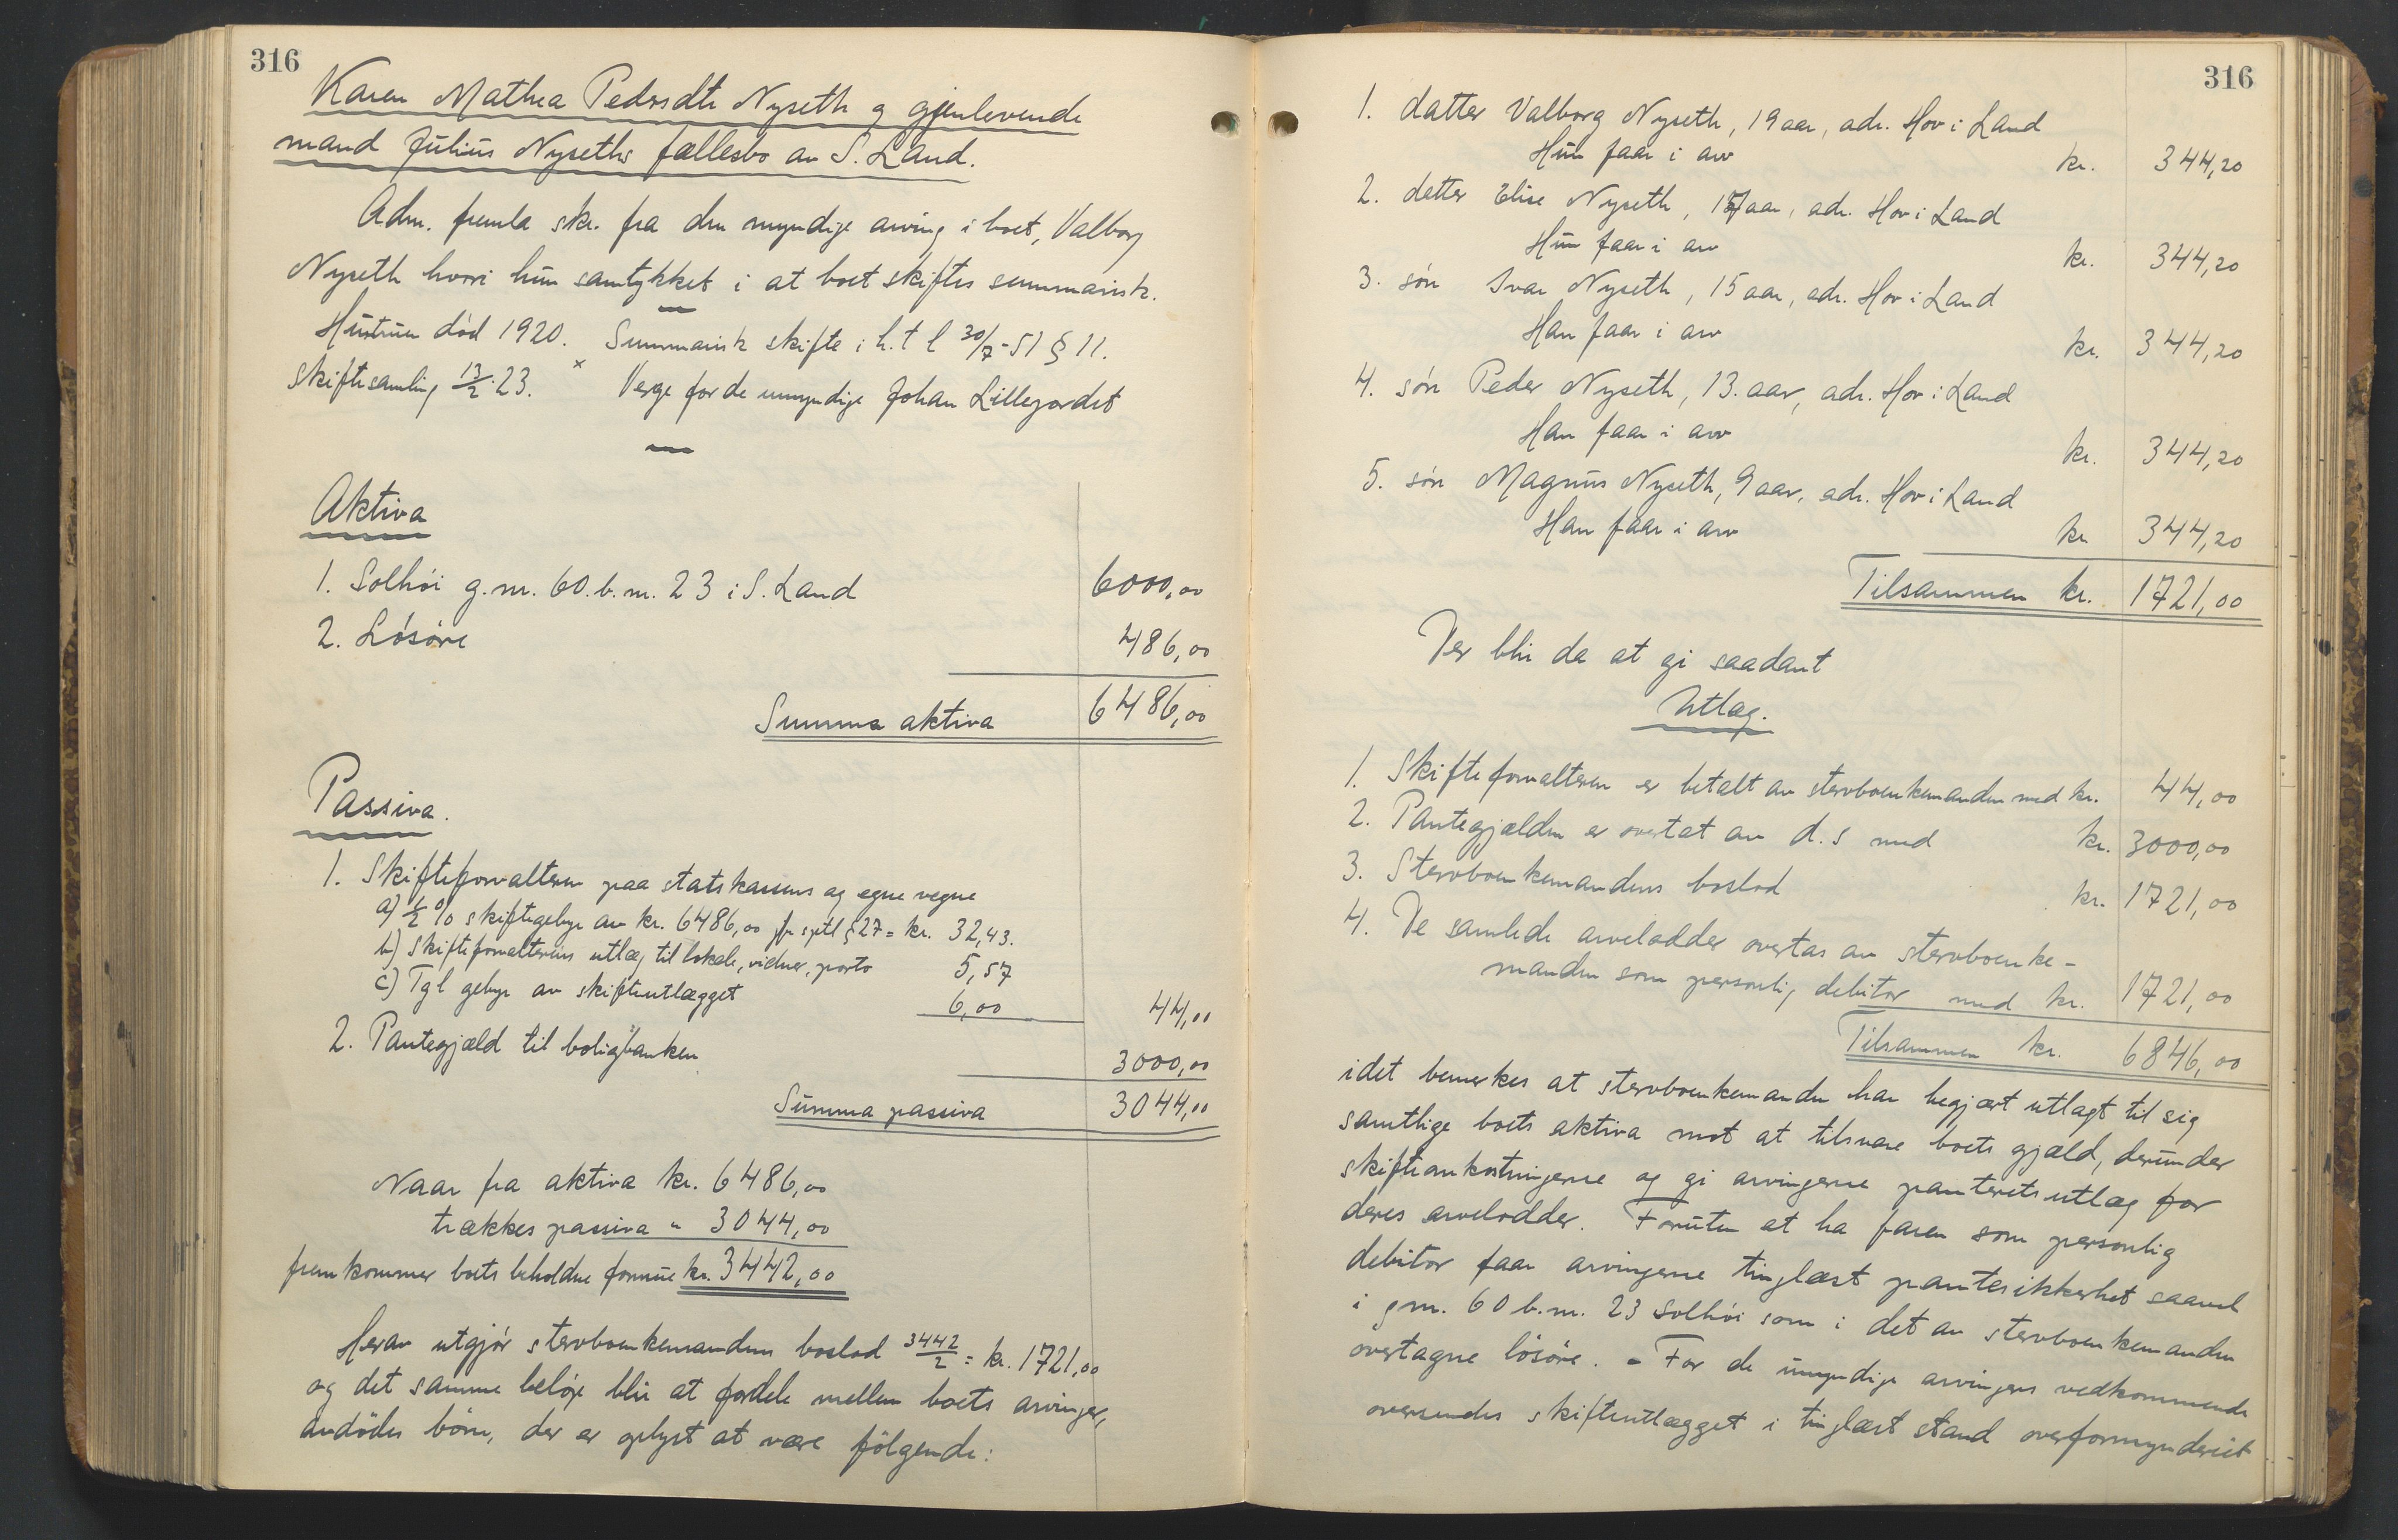 316
Karen Mathea Pedersdtr Nyseth og gjenlevende
mand Julius Nyseths fællesbo av S. Land.
Adm. fremla skr. fra den myndige arving i boet, Valborg
Nyseth hvori hun samtykket i at boet skiftes summarisk.
Hustruen död 1920. Summarisk skifte i h.t l 30/7-51 § 11.
Skiftesamling 13/2.23. x Verge for de umyndige Johan Lillejordet
Aktiva
1. Solhöi g.nr. 60.b.nr. 23 i S. Land 6000,00
2. Lösöre 486,00
Summa aktiva 6486,00
Passiva.
1. Skifteforvalteren paa statskassens og egne vegne
a) 1/2 % skiftegebyr av kr. 6486,00 jfr sptl § 27 = kr. 32,43.
b) Skifteforvalterens utlæg til lokale, vidner, porto 5,57
c) Tgl gebyr av skifteutlægget 6,00 44,00
2. Pantegjæld til boligbanken 3000,00
Summa passiva 3044,00
Naar fra aktiva kr. 6486,00
trækkes passiva " 3044,00
fremkommer boets beholdne formue kr. 3442,00
Herav utgjör stervboenkemandens boslod 3442/2 = kr. 1721,00
og det samme belöp blir at fordele mellem boets arvinger,
avdödes börn, der er oplyst at være fölgende:
316
1. datter Valborg Nyseth, 19 aar, adr. Hov i Land
Hun faar i arv kr. 344,20
2. datter Elise Nyseth, 17 aar, adr. Hov i Land
Hun faar i arv kr. 344,20
3. sön Ivar Nyseth, 15 aar, adr. Hov i Land
Han faar i arv kr. 344,20
4. sön Peder Nyseth, 13. aar, adr. Hov i Land
Han faar i arv kr. 344,20
5. sön Magnus Nyseth, 9 aar, adr. Hov i Land
Han faar i arv kr 344,20
Tilsammen kr. 1721,00
Der blir da at gi saadant
Utlæg.
1. Skifteforvalteren er betalt av stervboenkemanden med kr. 44,00
2. Pantegjælden er overtat av d.s med kr. 3000,00
3. Stervboenkemandens boslod kr. 1721,00
4. De samlede arvelodder overtas av stervboenke-
manden som personlig debitor med kr. 1721,00
Tilsammen kr. 6846,00
idet bemerkes at stervboenkemanden har begjært utlagt til sig
samtlige boets aktiva mot at tilsvare boets gjæld, derunder
skifteomkostningerne og gi arvingerne panteretsutlæg for
deres arvelodder. Foruten at ha faren som personlig
debitor faar arvingerne tinglæst pantesikkerhet saavel
i gnr. 60 b.nr. 23 Solhöi som i det av stervboenkemanden
overtagne lösöre. - For de umyndige arvingers vedkommende
oversendes skifteutlægget i tinglæst stand overformynderiet